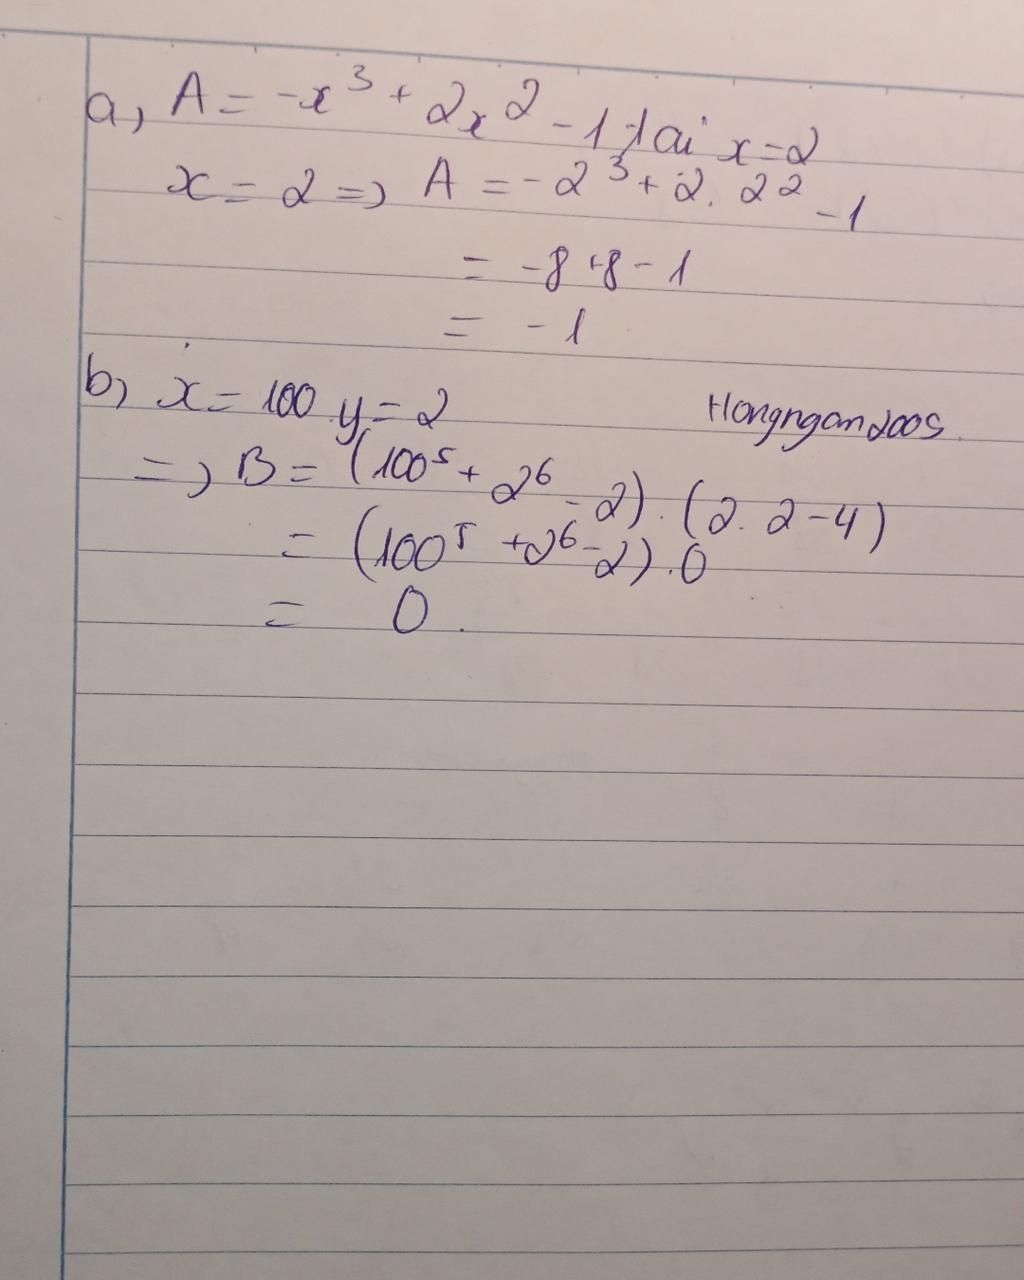 a, A = -x³ + 2x² - 1 tại x = 2
x = 2 => A = -2³ + 2. 2² - 1
= -8 + 8 - 1
= -1
b, x = 100 y = 2
Hongngan2005
=> B = (100⁵ + 2⁶ - 2) . (2. 2 - 4)
= (100⁵ + 2⁶ - 2) . 0
= 0.